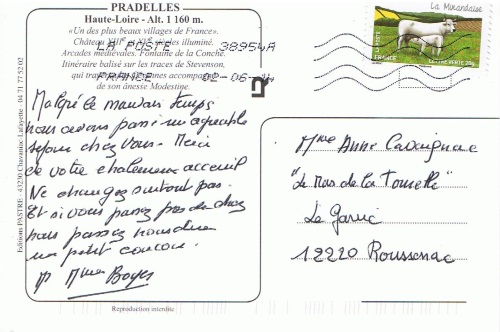 PRADELLES
Haute-Loire - Alt. 1 160 m.
«Un des plus beaux villages de France».
Château XIIIe et XVe siècles illuminé.
Arcades médiévales. Fontaine de la Conche.
Itinéraire balisé sur les traces de Stevenson,
de son ânesse Modestine.
LA POSTE 38954A
FRANCE 02-06-
La Mirandaise
FRANCE
LETTRE VERTE 20g
Malgré le mauvais temps
nous avons passé un agréable
séjour chez vous. Merci
de votre chaleureux accueil
Ne changez surtout pas.
Et si vous passez près de chez
nous passez nous dire
un petit coucou.
Mme Boyer
Mme Anne Cavaignac
"Le Mas de la Tourelle"
Le Garric
12220 Roussennac
Editions PASTRE - 43230 Chavaniac-Lafayette - 04 71 77 52 02
Reproduction interdite